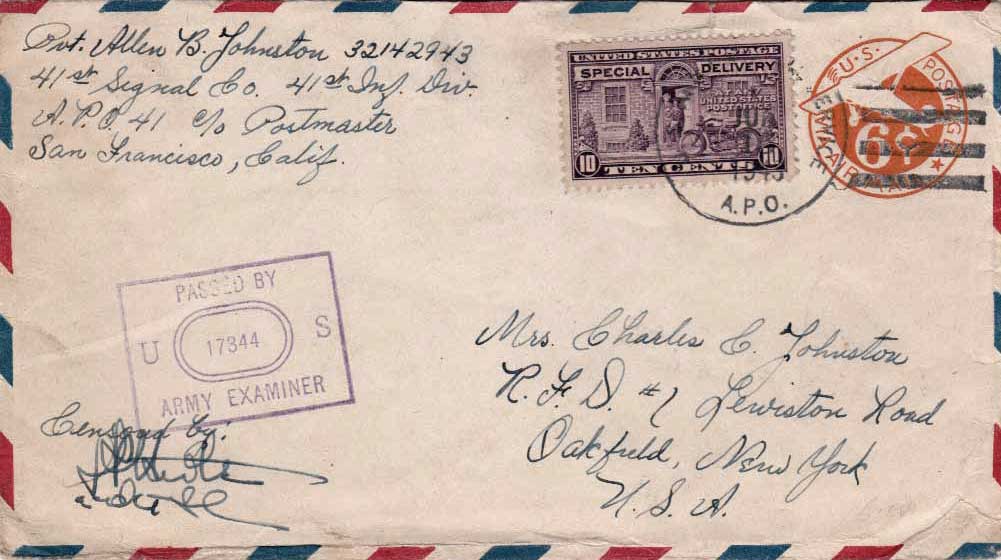 Pvt. Allen B. Johnston 32142943
41st Signal Co. 41st Inf. Div.
A.P.O. 41 c/o Postmaster
San Francisco, Calif.
UNITED STATES POSTAGE
SPECIAL DELIVERY
AT ANY
UNITED STATES
POST OFFICE
10 10
TEN CENTS
A.P.O.
U.S. POSTAGE
6¢
AIR MAIL
PASSED BY
U 17344 S
ARMY EXAMINER
Censored by:
Mrs. Charles C. Johnston
R.F.D. #1 Lewiston Road
Oakfield, New York
U.S.A.